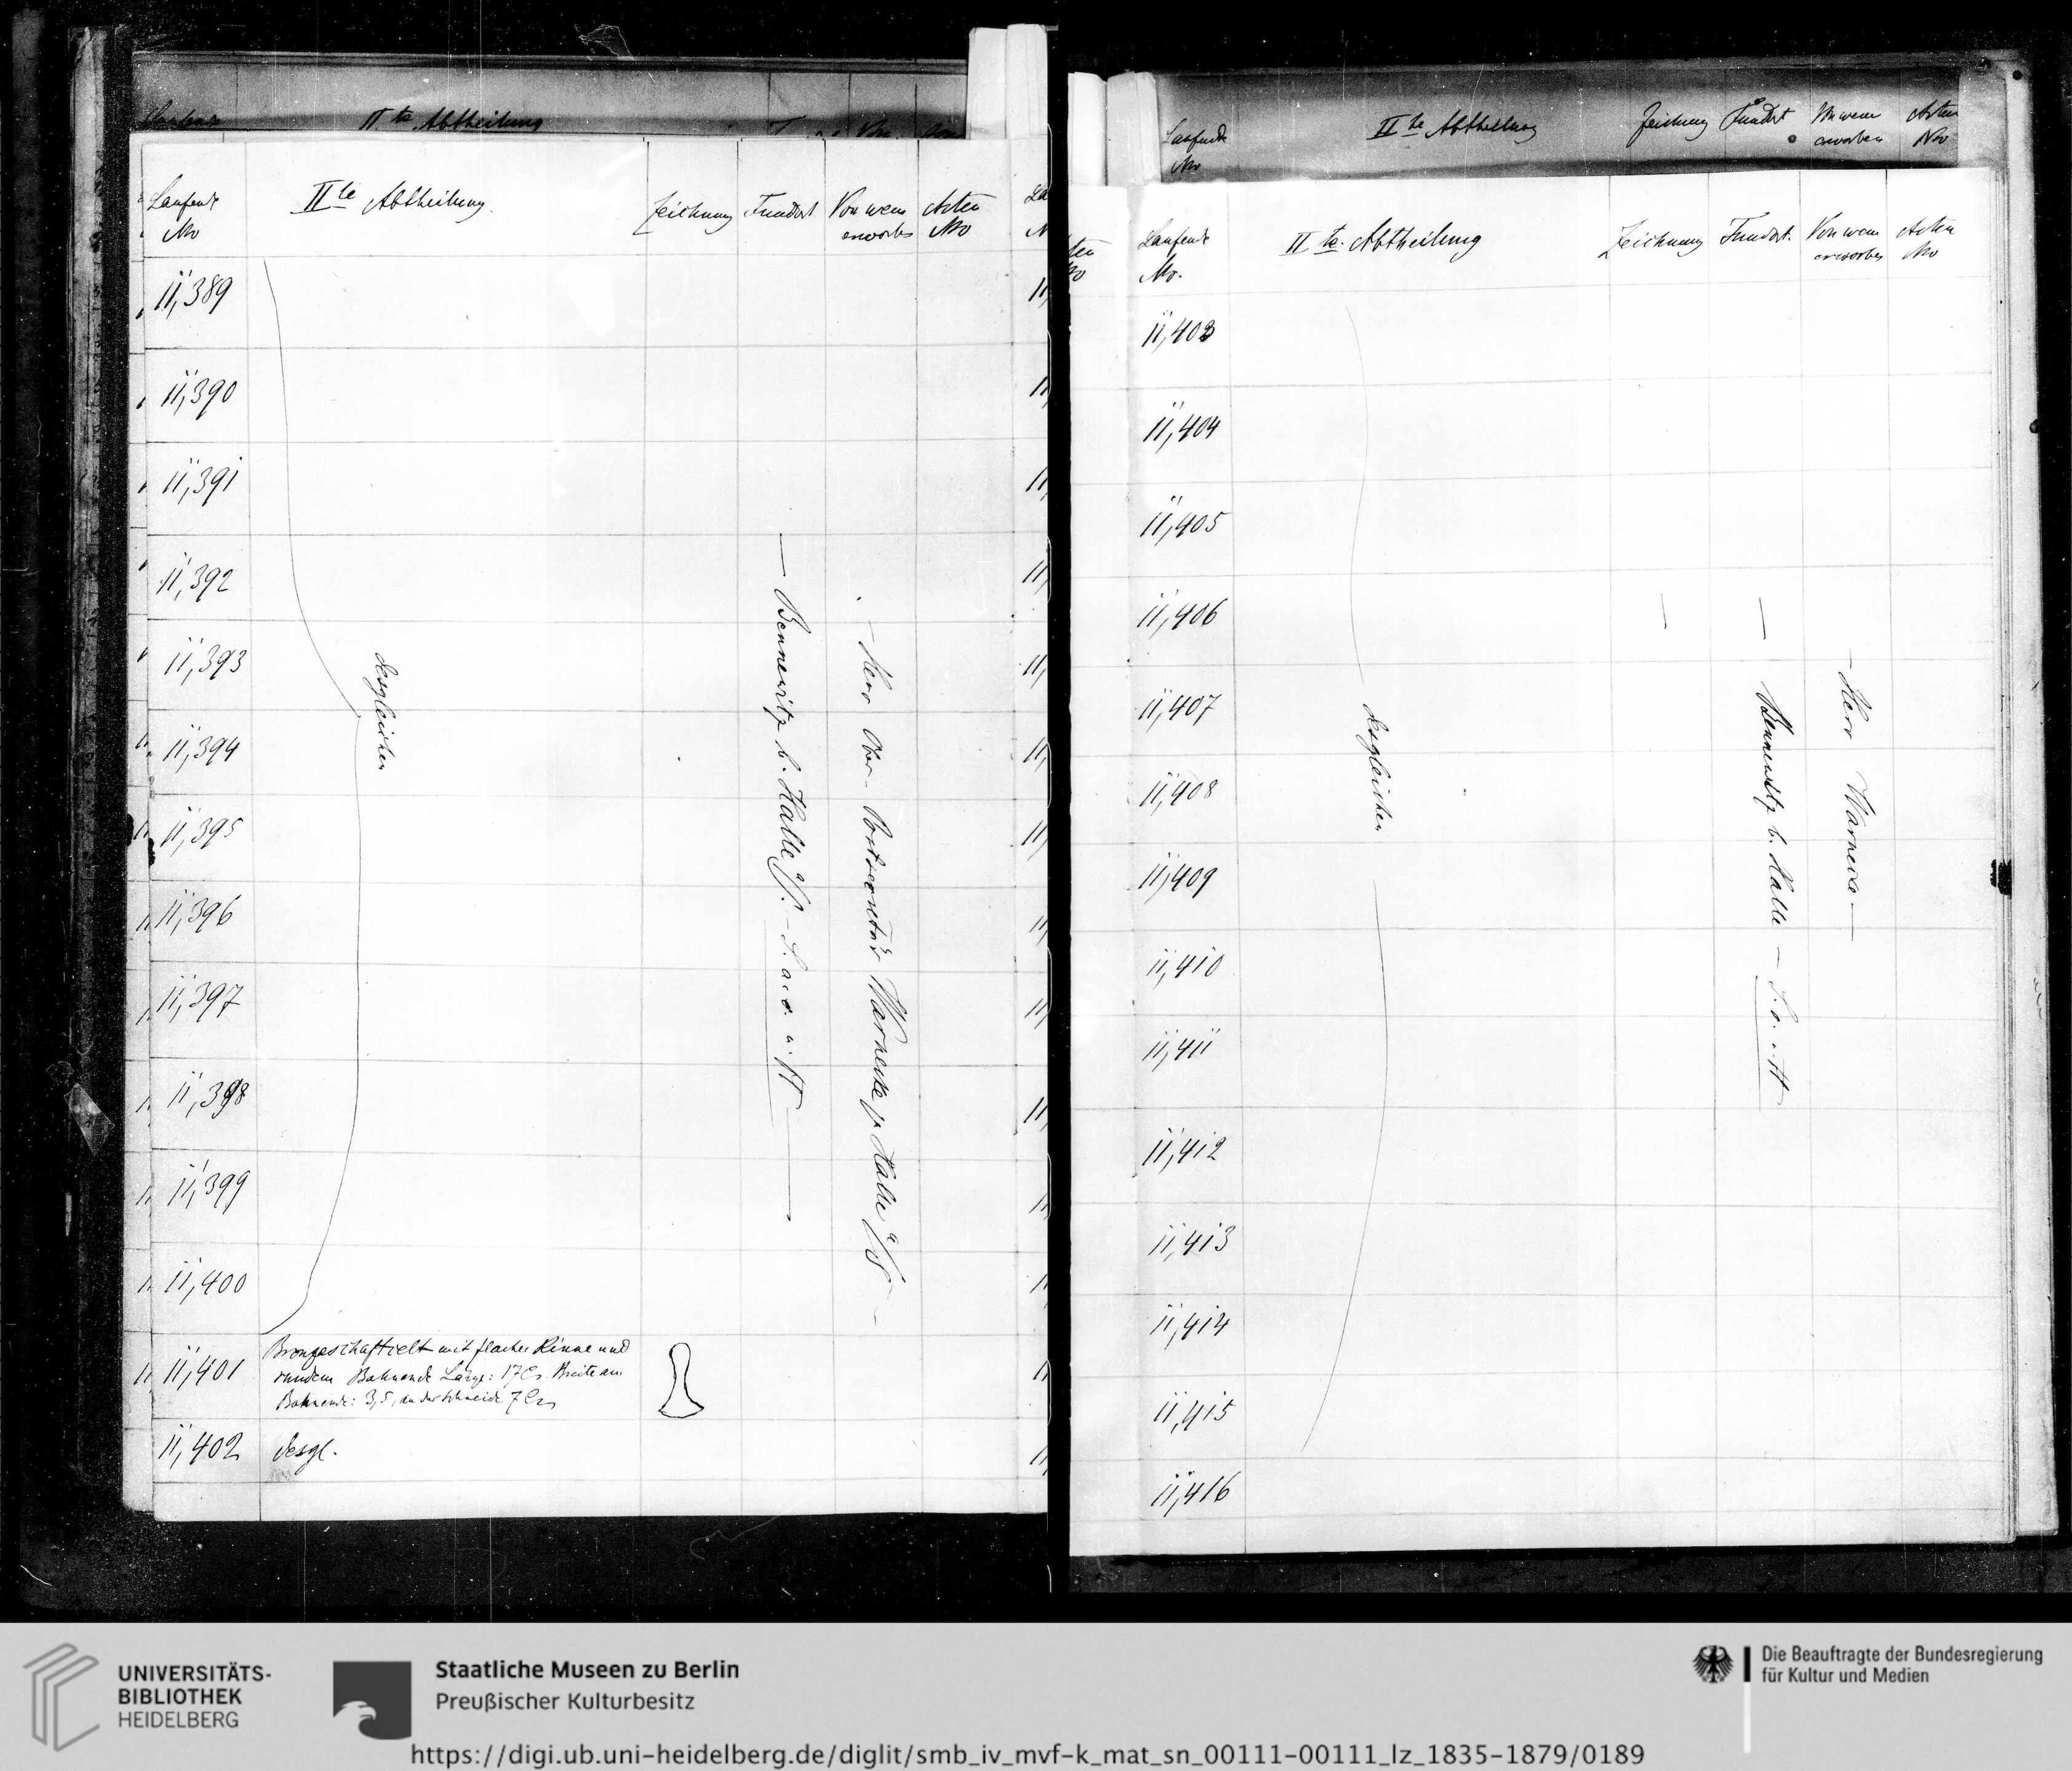 Laufende
IIte Abtheilung
Laufende
No
IIte Abtheilung
Zeichnung
Fundort
Von wem
erworben
Acten
No
II,389
II,390
II,391
II,392
II,393
II,394
II,395
II,396
II,397
II,398
II,399
II,400
desgleichen
— Bennewitz b. Halle a/S. —
— Herr Ober-Postsecretär Warnecke zu Halle a/S —
II,401
Bronzeschaftcelt mit flacher Rinne und
rundem Bahnende Länge: 17 Cm. Breite am
Bahnende: 3,5, an der Schneide 7 Cm
II,402
desgl.
Laufende
No
IIte Abtheilung
Zeichnung
Fundort
Von wem
erworben
Acten
No
Laufende
No.
IIte. Abtheilung
Zeichnung
Fundort.
Von wem
erworben
Acten
No
II,403
II,404
II,405
II,406
II,407
II,408
II,409
II,410
II,411
II,412
II,413
II,414
II,415
II,416
desgleichen
— Bennewitz b. Halle —
— Herr Warnecke —
UNIVERSITÄTS-
BIBLIOTHEK
HEIDELBERG
Staatliche Museen zu Berlin
Preußischer Kulturbesitz
Die Beauftragte der Bundesregierung
für Kultur und Medien
https://digi.ub.uni-heidelberg.de/diglit/smb_iv_mvf-k_mat_sn_00111-00111_lz_1835-1879/0189